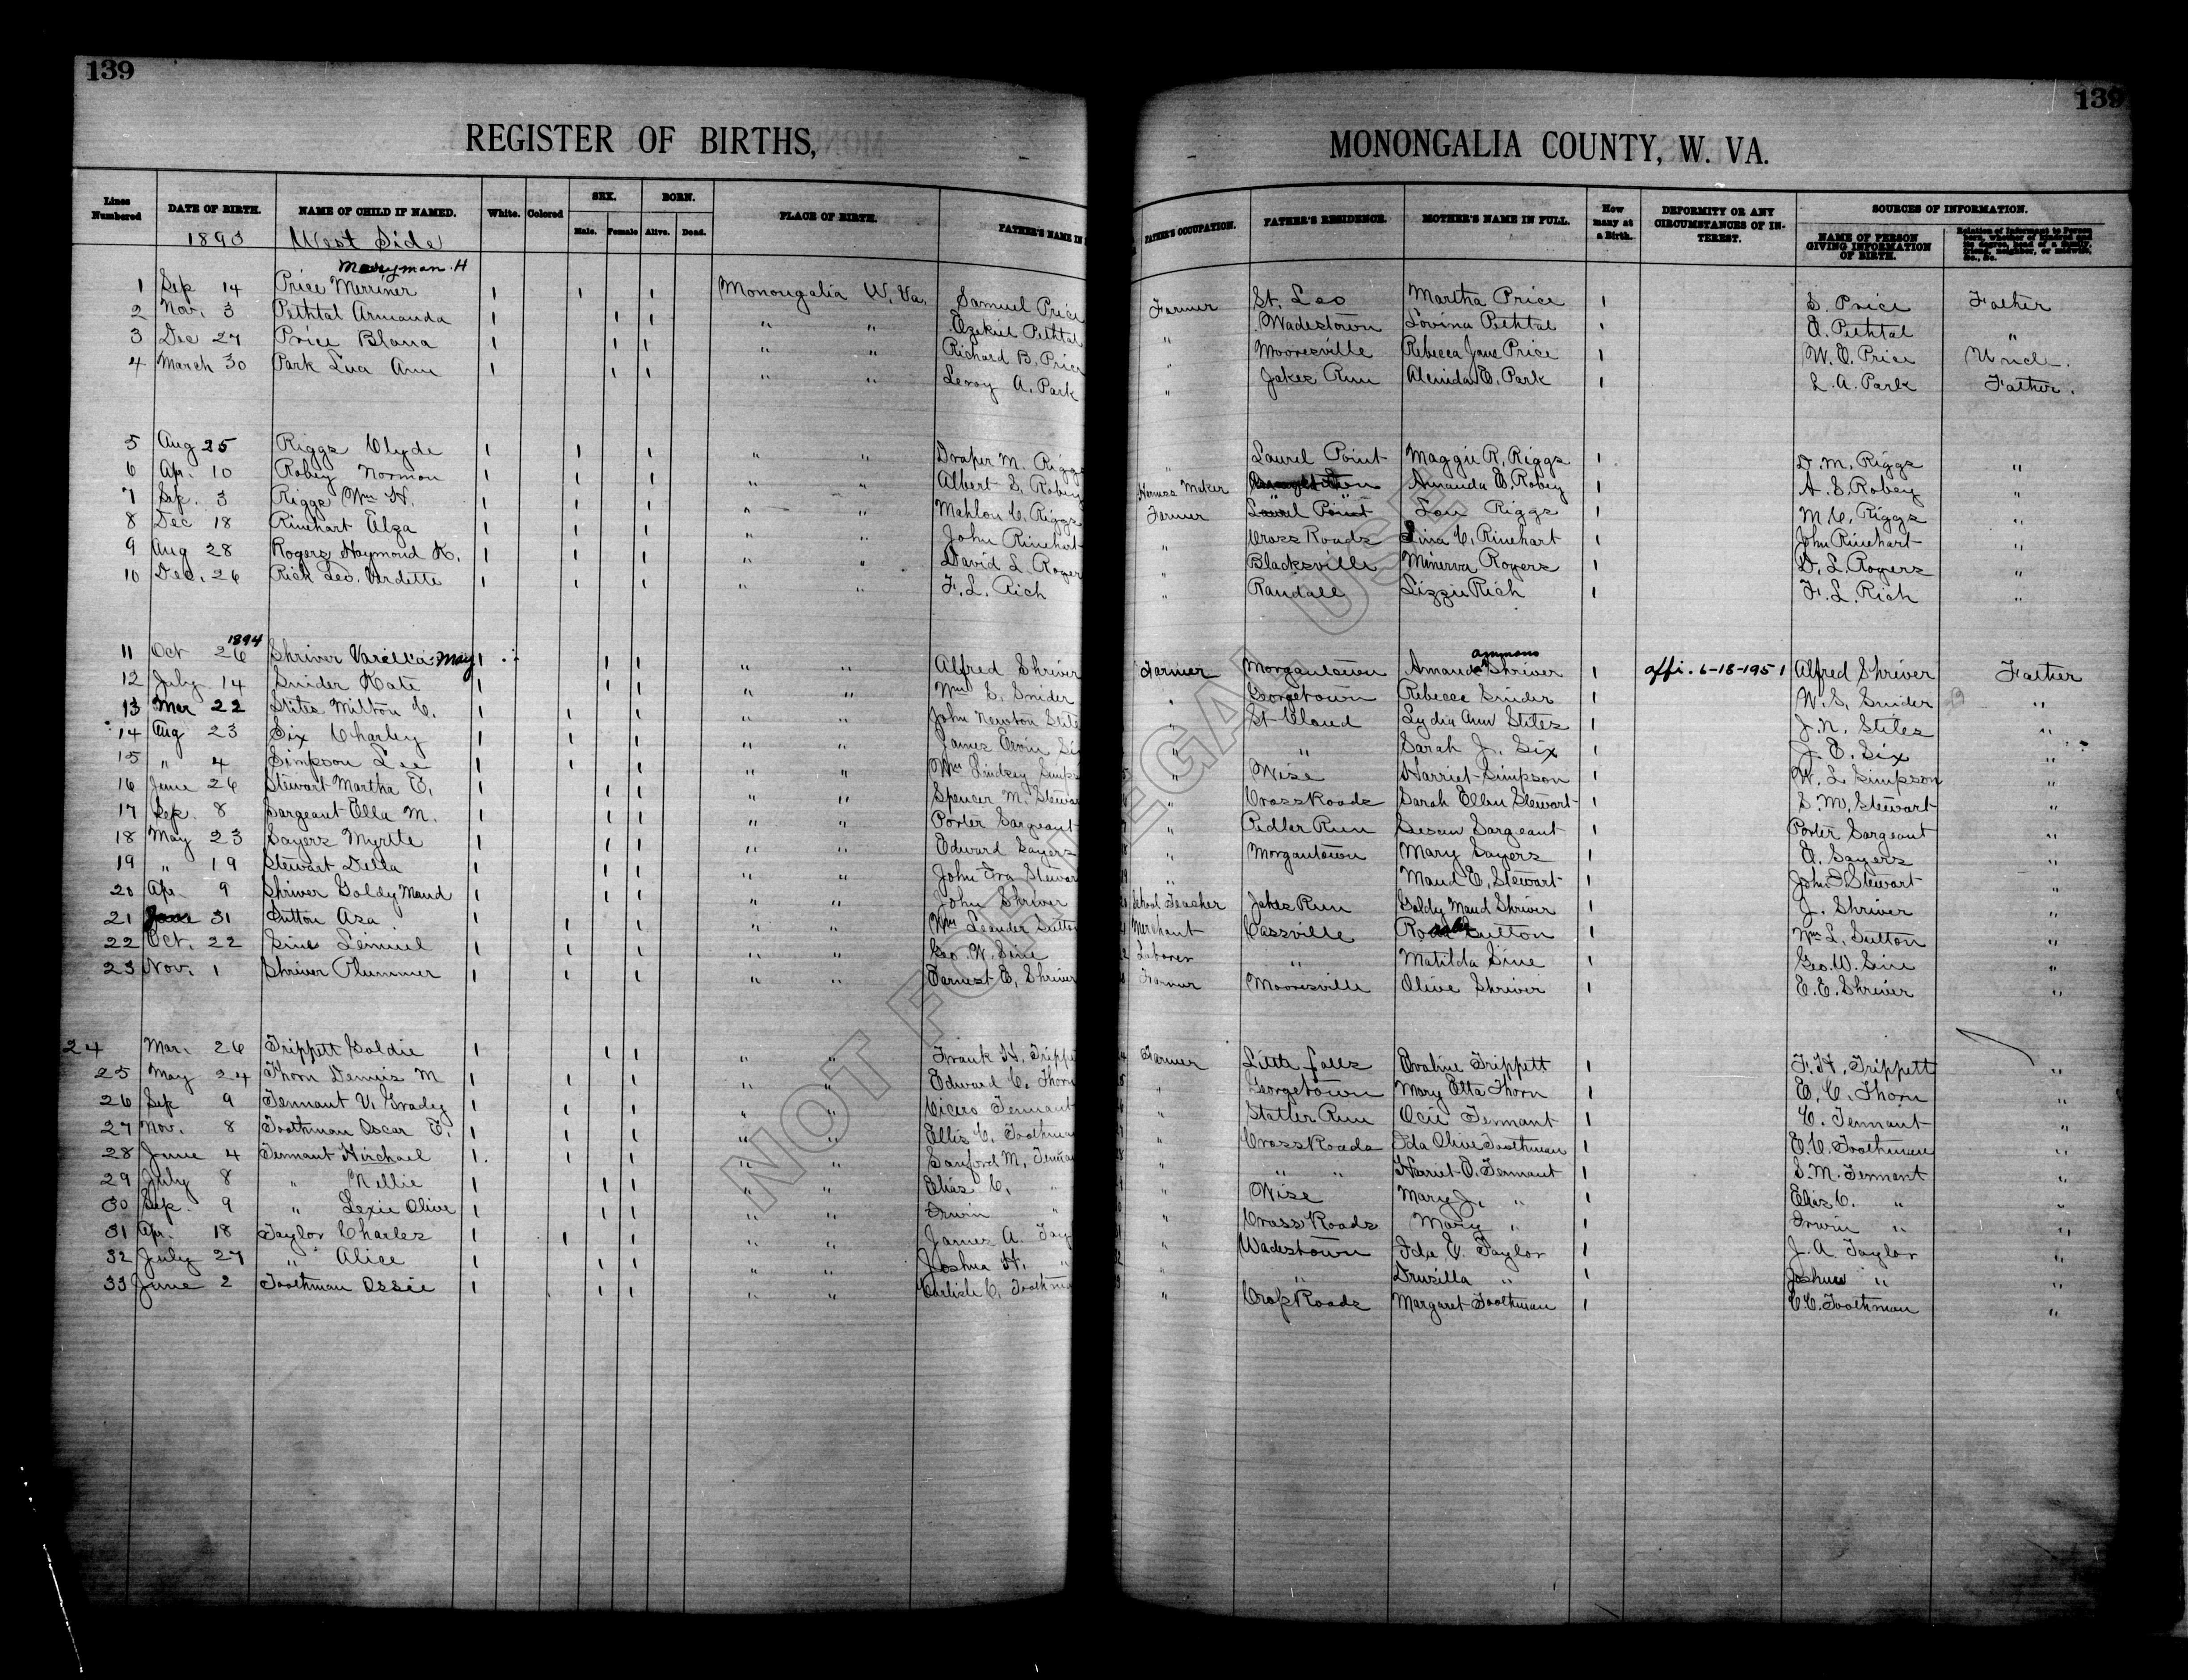 139
139
REGISTER OF BIRTHS,
MONONGALIA COUNTY, W. VA.
Lines Numbered | DATE OF BIRTH. | NAME OF CHILD IF NAMED. | White. | Colored | SEX. Male. Female | BORN. Alive. Dead. | PLACE OF BIRTH. | FATHER'S NAME IN | FATHER'S OCCUPATION. | FATHER'S RESIDENCE. | MOTHER'S NAME IN FULL. | How many at a Birth. | DEFORMITY OR ANY CIRCUMSTANCES OF INTEREST. | SOURCES OF INFORMATION. NAME OF PERSON GIVING INFORMATION OF BIRTH. | Relation of Informant to Person born, whether of kindred and its degree, head of a family, friend, neighbor, or midwife, &c., &c.
1893 West Side
Merryman H
1 Sep 14 Price Merriner 1 1 1 Monongalia W. Va. Samuel Price Farmer St. Leo Martha Price 1 S. Price Father
2 Nov. 3 Pethtal Armanda 1 1 1 " " Ezekiel Pethtal " Wadestown Lovina Pethtal 1 E. Pethtal "
3 Dec 27 Price Blana 1 1 1 " " Richard B. Price " Mooresville Rebecca Jane Price 1 W. E. Price Uncle.
4 March 30 Park Lua Ann 1 1 1 " " Leroy A. Park " Jakes Run Alminda E. Park 1 L. A. Park Father.
5 Aug 25 Riggs Clyde 1 1 1 " " Draper M. Riggs " Laurel Point Maggie R. Riggs 1 D. M. Riggs "
6 Apr. 10 Robey Normon 1 1 1 " " Albert S. Robey Harness Maker Amanda E. Robey 1 A. S. Robey "
7 Sep. 3 Riggs Wm H. 1 1 1 " " Mahlon C. Riggs Farmer Laurel Point Lou Riggs 1 M. C. Riggs "
8 Dec 18 Rinehart Elza 1 1 1 " " John Rinehart " Cross Roads Lina C. Rinehart 1 John Rinehart "
9 Aug 28 Rogers Haymond K. 1 1 1 " " David L. Roger " Blacksville Minerva Rogers 1 D. L. Rogers "
10 Dec. 26 Rich Leo. Verdette 1 1 1 " " F. L. Rich " Randall Lizzie Rich 1 F. L. Rich "
1894 ammons
11 Oct 26 Shriver Varilla May 1 1 1 " " Alfred Shriver Farmer Morgantown Amanda Shriver 1 affi. 6-18-1951 Alfred Shriver Father
12 July 14 Snider Kate 1 1 1 " " Wm S. Snider " Georgetown Rebecca Snider 1 W. S. Snider "
13 Mar 22 Stiles Milton C. 1 1 1 " " John Newton Stile " St Cloud Lydia Ann Stiles 1 J. N. Stiles "
14 Aug 23 Six Charley 1 1 1 " " James Ervin Si " " Sarah J. Six 1 J. E. Six "
15 " 4 Simpson Lee 1 1 1 " " Wm Lindsey Simps " Wise Harriet Simpson 1 W. L. Simpson "
16 June 26 Stewart Martha E. 1 1 1 " " Spencer M. Stewar " Cross Roads Sarah Ellen Stewart 1 S. M. Stewart "
17 Sep. 8 Sargeant Ella M. 1 1 1 " " Porter Sargeant " Pedler Run Susan Sargeant 1 Porter Sargeant "
18 May 23 Sayers Myrtle 1 1 1 " " Edward Sayers " Morgantown Mary Sayers 1 E. Sayers "
19 " 19 Stewart Della 1 1 1 " " John Ora Stewar " Maud E. Stewart 1 John Stewart "
20 Apr. 9 Shriver Goldy Maud 1 1 1 " " John Shriver School Teacher Jakes Run Goldy Maud Shriver 1 J. Shriver "
21 31 Sutton Asa 1 1 1 " " Wm Leander Sutton Merchant Cassville Sutton 1 Wm L. Sutton "
22 Oct. 22 Sine Lemuel 1 1 1 " " Geo. W. Sine Laborer " Matilda Sine 1 Geo. W. Sine "
23 Nov. 1 Shriver Plummer 1 1 1 " " Earnest E. Shriver Farmer Mooresville Olive Shriver 1 E. E. Shriver "
24 Mar. 26 Trippett Goldie 1 1 1 " " Frank H. Trippe Farmer Little Falls Evaline Trippett 1 F. H. Trippett "
25 May 24 Thorn Dennis M 1 1 1 " " Edward C. Thorn " Georgetown Mary Etta Thorn 1 E. C. Thorn "
26 Sep 9 Tennant V. Grady 1 1 1 " " Cicero Tennant " Statler Run Ocie Tennant 1 C. Tennant "
27 Nov. 8 Toothman Oscar E. 1 1 1 " " Ellis C. Toothman " Cross Roads Ida Olive Toothman 1 E. C. Toothman "
28 June 4 Tennant Hirchael 1 1 1 " " Sanford M. Tenna " " " Harriet E. Tennant 1 S. M. Tennant "
29 July 8 " Nellie 1 1 1 " " Elias C. " " Wise Mary J. " 1 Elias C. " "
30 Sep. 9 " Lexie Olive 1 1 1 " " Irwin " " Cross Roads Mary " 1 Irwin " "
31 Apr. 18 Taylor Charles 1 1 1 " " James A. Tay " Wadestown Ida E. Taylor 1 J. A. Taylor "
32 July 27 " Alice 1 1 1 " " Joshua H. " " " Druzilla " 1 Joshua " "
33 June 2 Toothman Ossie 1 1 1 " " Carlisle C. Toothma " Cross Roads Margaret Toothman 1 C. C. Toothman "
NOT FOR LEGAL USE